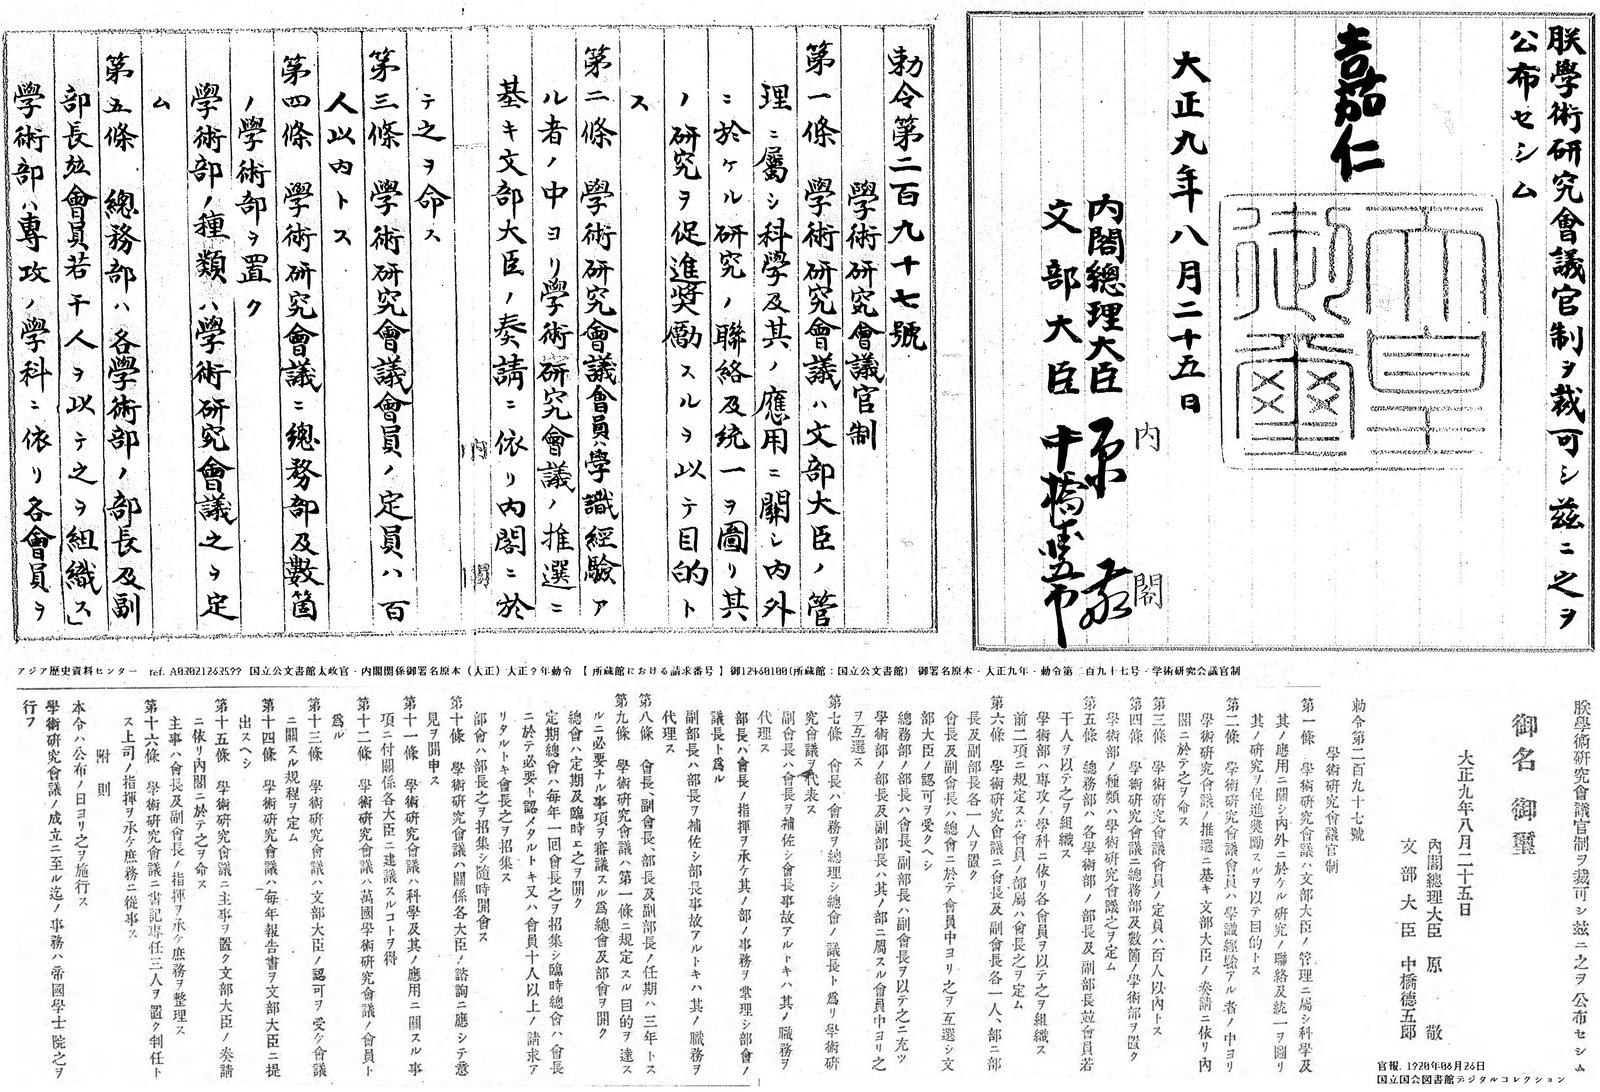 朕學術研究會議官制ヲ裁可シ茲ニ之ヲ
公布セシム
嘉仁
天皇御璽
大正九年八月二十五日
內閣總理大臣 原敬
文部大臣 中橋德五郎
內閣
勅令第二百九十七號
學術研究會議官制
第一條 學術研究會議ハ文部大臣ノ管
理ニ屬シ科學及其ノ應用ニ關シ內外
ニ於ケル研究ノ聯絡及統一ヲ圖リ其
ノ研究ヲ促進奬勵スルヲ以テ目的ト
ス
第二條 學術研究會議會員ハ學識經驗ア
ル者ノ中ヨリ學術研究會議ノ推選ニ
基キ文部大臣ノ奏請ニ依リ內閣ニ於
內閣
テ之ヲ命ス
第三條 學術研究會議會員ノ定員ハ百
人以內トス
第四條 學術研究會議ニ總務部及數箇
ノ學術部ヲ置ク
學術部ノ種類ハ學術研究會議之ヲ定
ム
第五條 總務部ハ各學術部ノ部長及副
部長竝會員若干人ヲ以テ之ヲ組織ス
學術部ハ專攻ノ學科ニ依リ各會員ヲ
アジア歴史資料センター ref. A03021263599 国立公文書館太政官・内閣関係御署名原本(大正)大正9年勅令 【 所蔵館における請求番号 】 御12460100(所蔵館:国立公文書館) 御署名原本・大正九年・勅令第二百九十七号・学術研究会議官制
朕學術硏究會議官制ヲ裁可シ玆ニ之ヲ公布セシム
御名 御璽
大正九年八月二十五日
內閣總理大臣 原 敬
文部大臣 中橋德五郎
勅令第二百九十七號
學術硏究會議官制
第一條 學術硏究會議ハ文部大臣ノ管理ニ屬シ科學及
其ノ應用ニ關シ內外ニ於ケル硏究ノ聯絡及統一ヲ圖リ
其ノ硏究ヲ促進奬勵スルヲ以テ目的トス
第二條 學術硏究會議會員ハ學識經驗アル者ノ中ヨリ
學術硏究會議ノ推選ニ基キ文部大臣ノ奏請ニ依リ內
閣ニ於テ之ヲ命ス
第三條 學術硏究會議會員ノ定員ハ百人以內トス
第四條 學術硏究會議ニ總務部及數箇ノ學術部ヲ置ク
學術部ノ種類ハ學術硏究會議之ヲ定ム
第五條 總務部ハ各學術部ノ部長及副部長竝會員若
干人ヲ以テ之ヲ組織ス
學術部ハ專攻ノ學科ニ依リ各會員ヲ以テ之ヲ組織ス
前二項ニ規定スル會員ノ部屬ハ會長之ヲ定ム
第六條 學術硏究會議ニ會長及副會長各一人、部ニ部
長及副部長各一人ヲ置ク
會長及副會長ハ總會ニ於テ會員中ヨリ之ヲ互選シ文
部大臣ノ認可ヲ受クヘシ
總務部ノ部長ハ會長副部長ハ副會長ヲ以テ之ニ充ツ
學術部ノ部長及副部長ハ其ノ部ニ屬スル會員中ヨリ之
ヲ互選ス
第七條 會長ハ會務ヲ總理シ總會ノ議長ト爲リ學術硏
究會議ヲ代表ス
副會長ハ會長ヲ補佐シ會長事故アルトキハ其ノ職務ヲ
代理ス
部長ハ會長ノ指揮ヲ承ケ其ノ部ノ事務ヲ掌理シ部會ノ
議長ト爲ル
副部長ハ部長ヲ補佐シ部長事故アルトキハ其ノ職務ヲ
代理ス
第八條 會長、副會長、部長及副部長ノ任期ハ三年トス
第九條 學術硏究會議ハ第一條ニ規定スル目的ヲ達ス
ルニ必要ナル事項ヲ審議スル爲總會及部會ヲ開ク
總會ハ定期及臨時ニ之ヲ開ク
定期總會ハ每年一回會長之ヲ招集シ臨時總會ハ會長
ニ於テ必要ト認メタルトキ又ハ會員十人以上ノ請求ア
リタルトキ會長之ヲ招集ス
部會ハ部長之ヲ招集シ隨時開會ス
第十條 學術硏究會議ハ關係各大臣ノ諮詢ニ應シテ意
見ヲ開申ス
第十一條 學術硏究會議ハ科學及其ノ應用ニ關スル事
項ニ付關係各大臣ニ建議スルコトヲ得
第十二條 學術硏究會議ハ萬國學術硏究會議ノ會員ト
爲ル
第十三條 學術硏究會議ハ文部大臣ノ認可ヲ受ケ會議
ニ關スル規程ヲ定ム
第十四條 學術硏究會議ハ每年報告書ヲ文部大臣ニ提
出スヘシ
第十五條 學術硏究會議ニ主事ヲ置ク文部大臣ノ奏請
ニ依リ內閣ニ於テ之ヲ命ス
主事ハ會長及副會長ノ指揮ヲ承ケ庶務ヲ整理ス
第十六條 學術硏究會議ニ書記專任三人ヲ置ク判任ト
ス上司ノ指揮ヲ承ケ庶務ニ從事ス
附 則
本令ハ公布ノ日ヨリ之ヲ施行ス
學術硏究會議ノ成立ニ至ル迄ノ事務ハ帝國學士院之ヲ
行フ
官報. 1920年08月26日
国立国会図書館デジタルコレクション